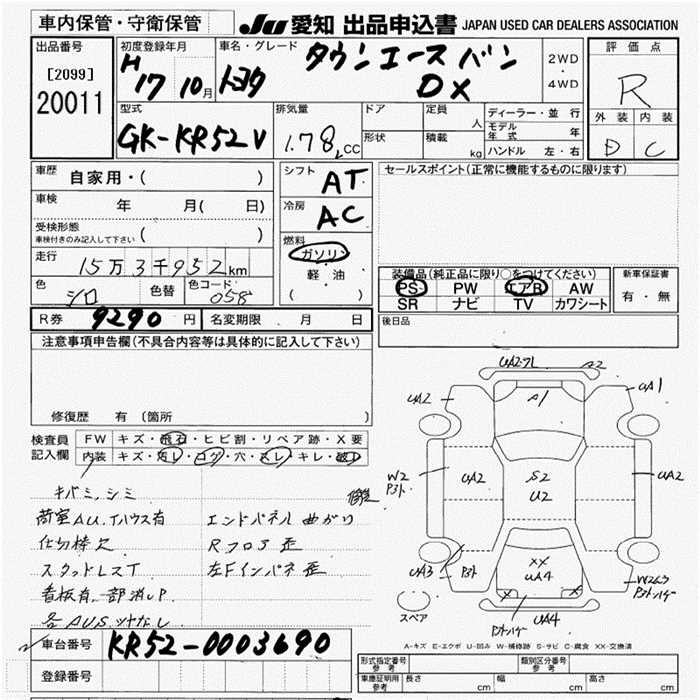 車内保管・守衛保管
JU 愛知 出品申込書 JAPAN USED CAR DEALERS ASSOCIATION
出品番号
[2099]
20011
初度登録年月
H
17 10月
車名・グレード
トヨタ
タウンエースバン
DX
2WD
・
4WD
評価点
R
外装 内装
D C
型式
GK-KR52V
排気量
1.78 ℓCC
ドア
形状
定員
人
積載
kg
ディーラー・並行
モデル年式 年
ハンドル 左・右
車歴
自家用・( )
車検
年 月( 日)
受検形態
車検付きのみ記入して下さい ( )
走行
15万3千952km
色 シロ
色替
色コード 058
シフト AT
冷房 AC
燃料
ガソリン
軽油
( )
セールスポイント(正常に機能するものに限ります)
装備品(純正品に限り○をつけてください)
PS PW エアB AW
SR ナビ TV カワシート
新車保証書
有・無
R券 9290 円
名変期限 月 日
後日品
注意事項申告欄(不具合内容等は具体的に記入して下さい)
修復歴 有(箇所 )
検査員
記入欄
FW キズ・飛石・ヒビ割・リペア跡・X要
内装 キズ・汚レ・コゲ・穴・スレ・キレ・破レ
キバミ、シミ
荷室AU.Tハウス有
エンドパネル曲がり
仕切棒欠
RフロS歪
スタッドレスT
左Fインパネ歪
看板有、一部消しP
UA2 A2
UA2 A1 UA1
W2 UA2 S2 U2 UA2
UA3 XX UA4
X X
UA4
スペア
A-キズ E-エクボ U-凹み W-補修跡 S-サビ C-腐食 XX-交換済
車台番号 KR52-0003690
登録番号
形式指定番号
参考
類別区分番号
参考
車庫証明用
参考
長さ cm 幅 cm 高さ cm